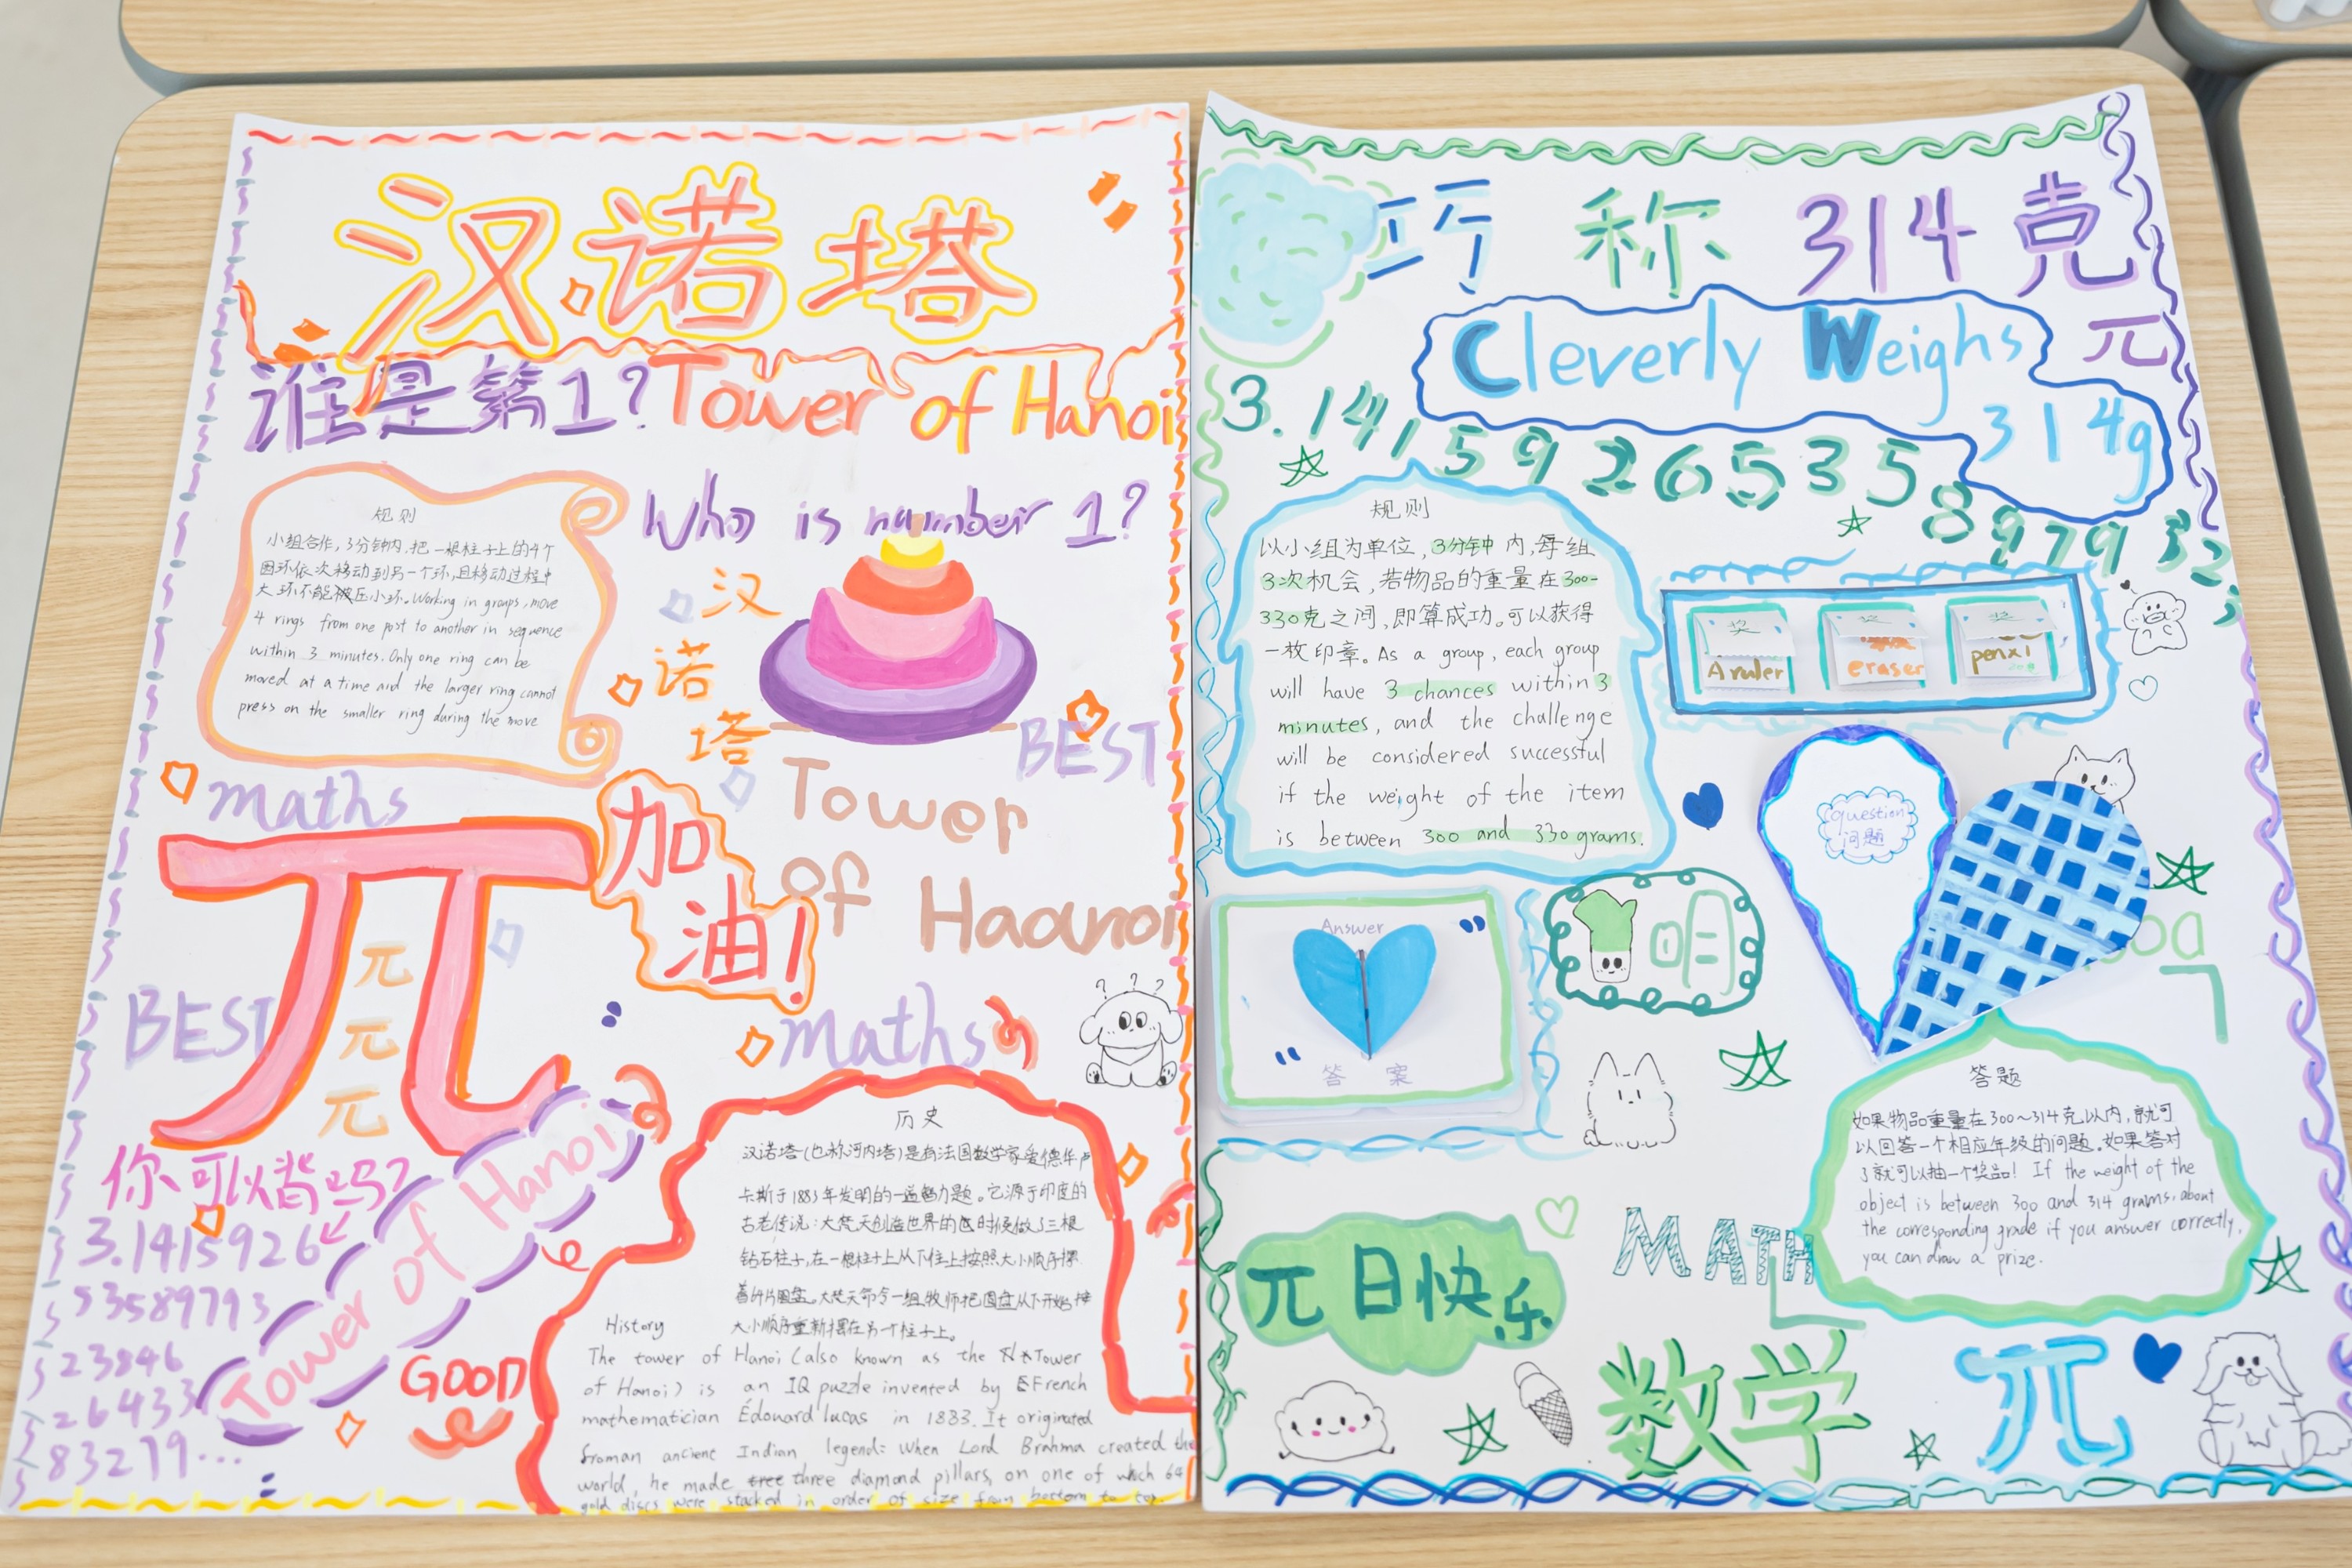 汉诺塔
谁是第1? Tower of Hanoi
Who is number 1?
规则
小组合作,3分钟内,把一根柱子上的4个
圆环依次移动到另一个环,且移动过程中
大环不能被压小环. Working in groups, move
4 rings from one post to another in sequence
within 3 minutes. Only one ring can be
moved at a time and the larger ring cannot
press on the smaller ring during the move
汉
诺
塔
BEST
maths
加
油!
Tower
of
Haanoi
π
元
元
元
BEST
maths
? ? ?
你可以背吗?
3.1415926
53589793
23846
26433
83279...
Tower of Hanoi
GOOD
历史
汉诺塔(也称河内塔)是有法国数学家爱德华卢
卡斯于1883年发明的一道智力题。它源于印度的
古老传说:大梵天创造世界的时候做了三根
钻石柱子,在一根柱子上从下往上按照大小顺序摞
着64片圆盘。大梵天命令一组牧师把圆盘从下开始按
大小顺序重新摆在另个柱子上。
History
The tower of Hanoi (also known as the Tower
of Hanoi) is an IQ puzzle invented by French
mathematician Édouard lucas in 1883. It originated
from an ancient Indian legend: When Lord Brahma created the
world, he made tree three diamond pillars, on one of which 64
gold discs were stacked in order of size from bottom to top.
巧称314克
Cleverly Weighs
314g
元
3.14159265358979 32
规则
以小组为单位,3分钟内,每组
3次机会,若物品的重量在300-
330克之间,即算成功。可以获得
一枚印章。As a group, each group
will have 3 chances within 3
minutes, and the challenge
will be considered successful
if the weight of the item
is between 300 and 330 grams.
奖 奖 奖
A ruler eraser penxl
question
问题
Answer
答案
答题
如果物品重量在300~314克以内,就可
以回答一个相应年级的问题。如果答对
了就可以抽一个奖品! If the weight of the
object is between 300 and 314 grams, about
the corresponding grade if you answer correctly,
you can draw a prize.
元日快乐
MATH
数学
π